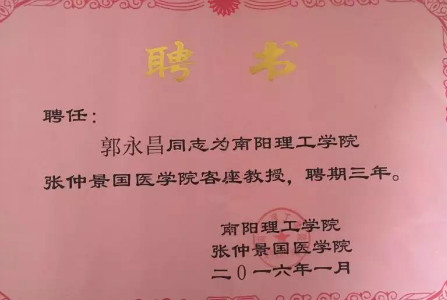 聘书
聘任：
郭永昌同志为南阳理工学院
张仲景国医学院客座教授，聘期三年。
南阳理工学院
张仲景国医学院
二〇一六年一月